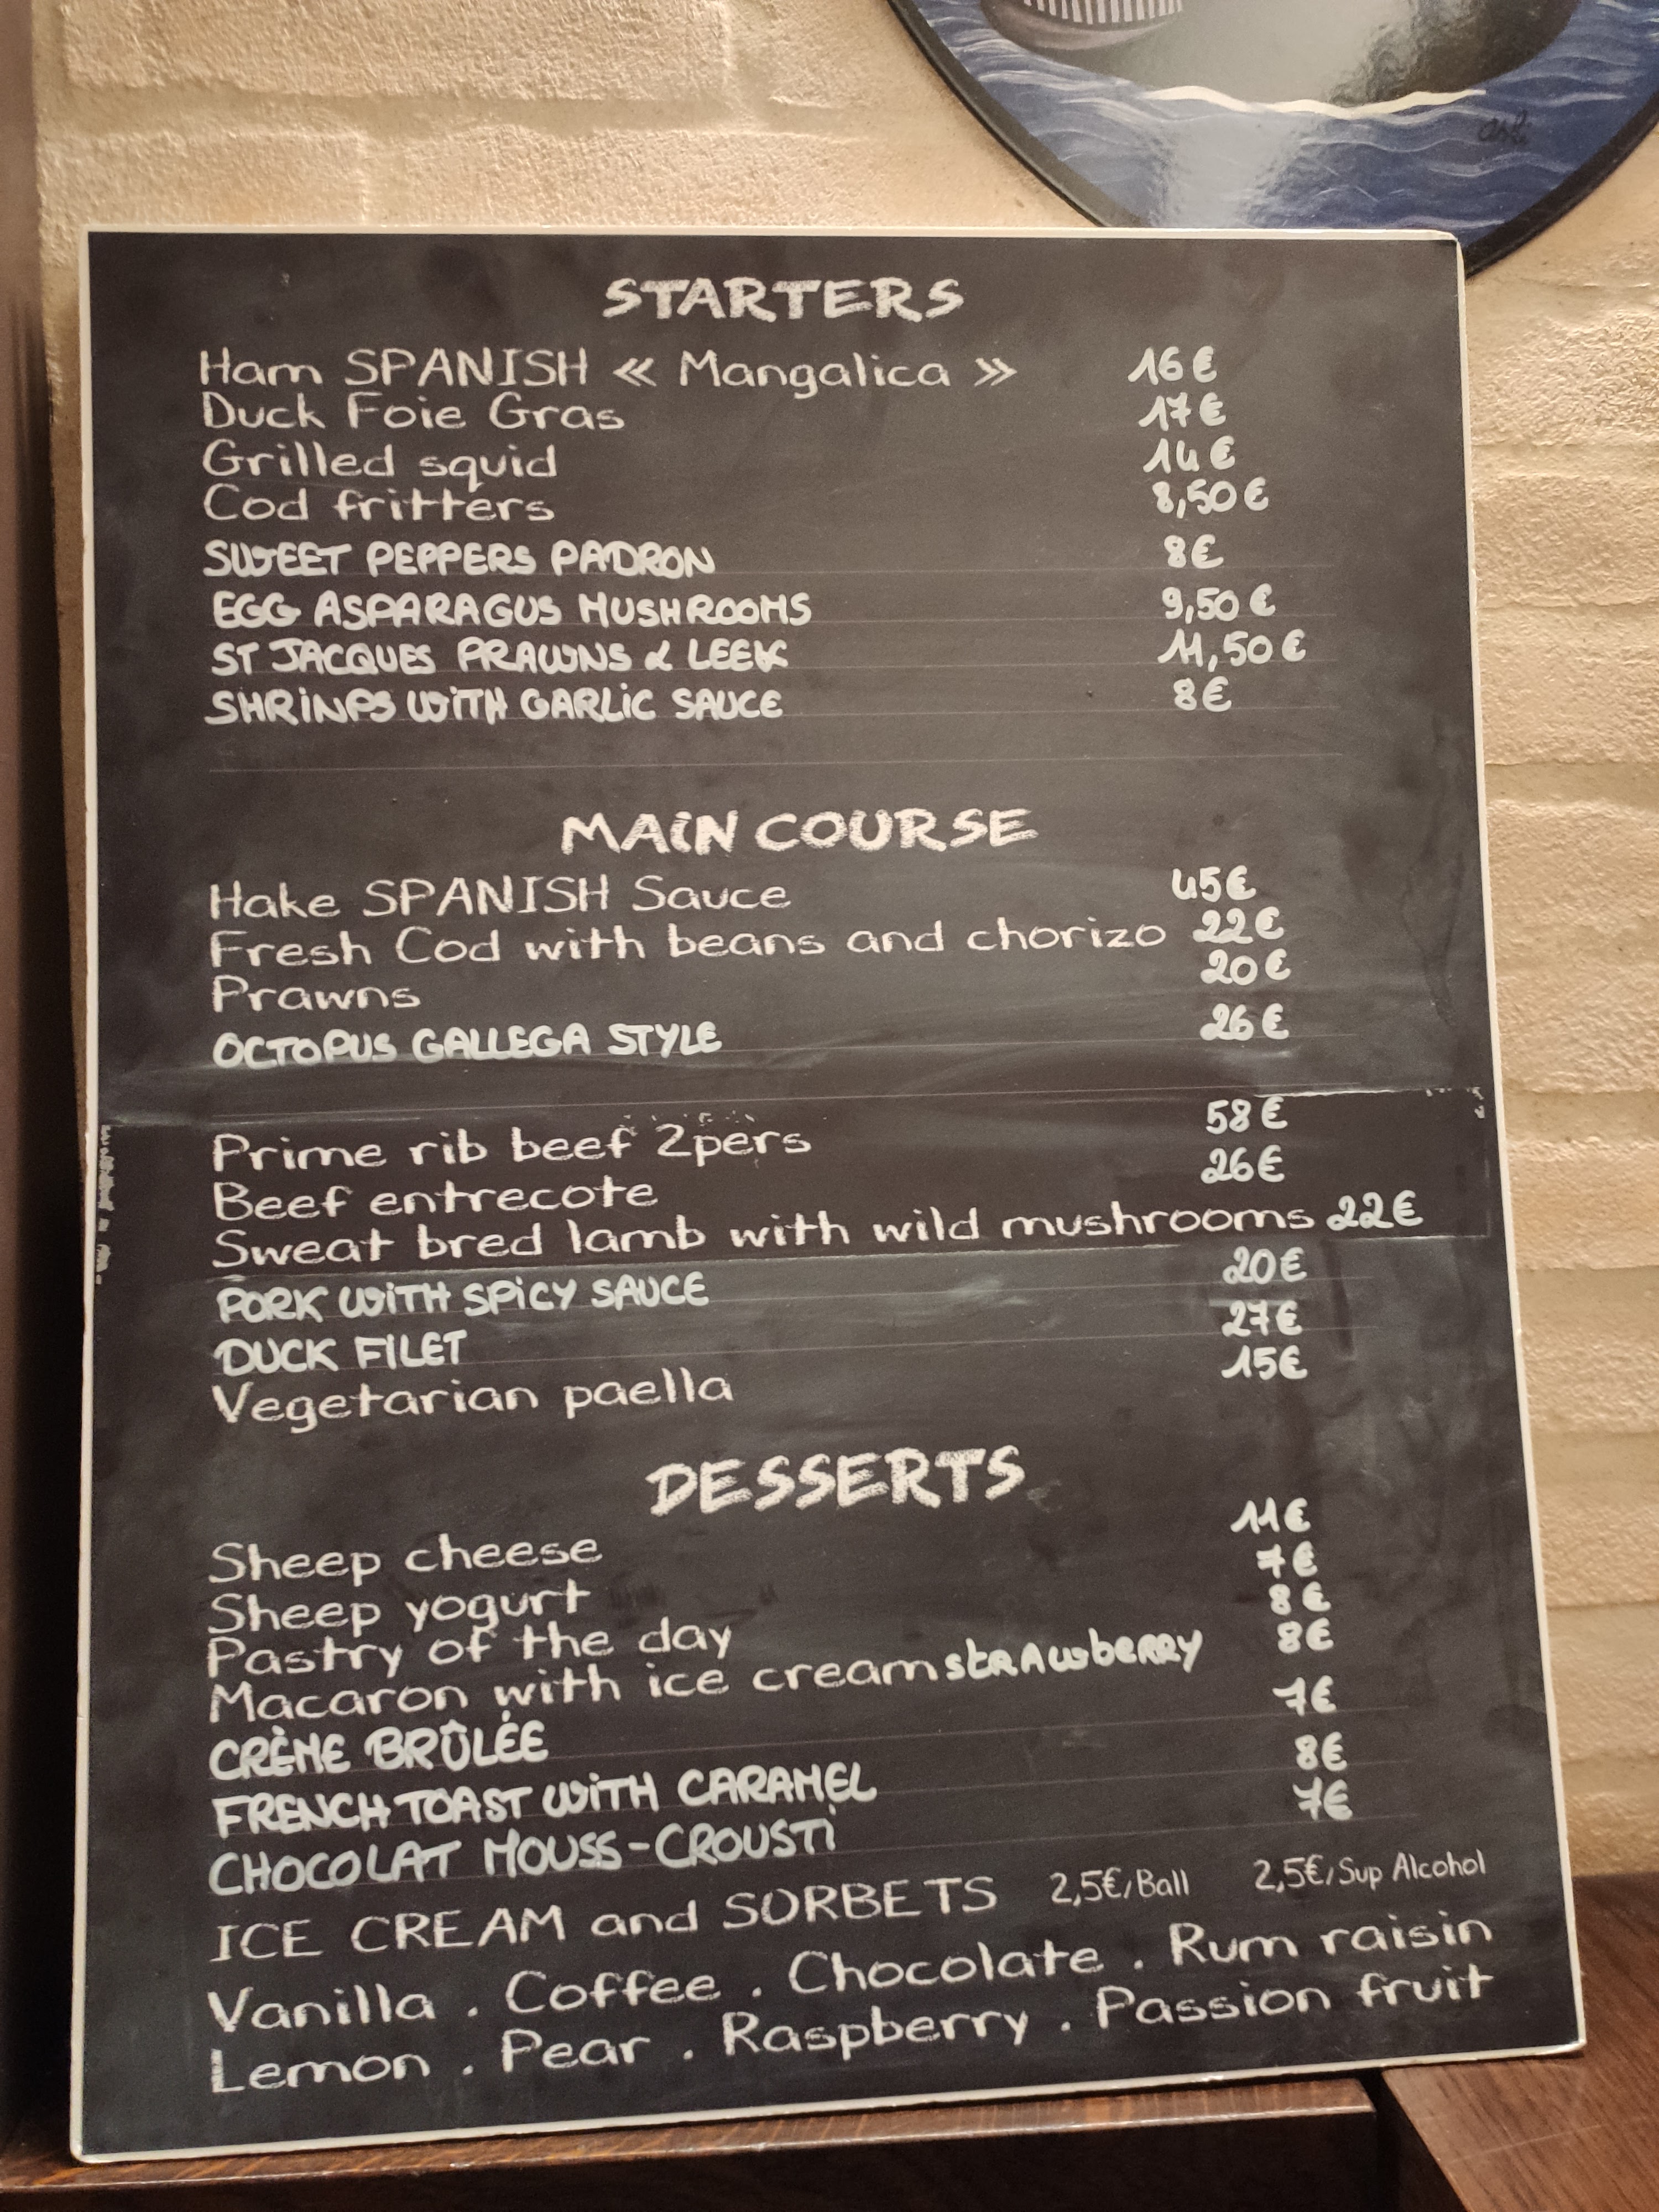 STARTERS
Ham SPANISH « Mangalica » 16€
Duck Foie Gras 17€
Grilled squid 14€
Cod fritters 8,50€
SWEET PEPPERS PADRON 8€
EGG ASPARAGUS MUSHROOMS 9,50€
ST JACQUES PRAWNS & LEEK 11,50€
SHRINPS WITH GARLIC SAUCE 8€
MAIN COURSE
Hake SPANISH Sauce 45€
Fresh Cod with beans and chorizo 22€
Prawns 20€
OCTOPUS GALLEGA STYLE 26€
Prime rib beef 2pers 58€
Beef entrecote 26€
Sweat bred lamb with wild mushrooms 22€
PORK WITH SPICY SAUCE 20€
DUCK FILET 27€
Vegetarian paella 15€
DESSERTS
Sheep cheese 11€
Sheep yogurt 7€
Pastry of the day 8€
Macaron with ice cream strawberry 8€
CRÈME BRÛLÉE 7€
FRENCH TOAST WITH CARAMEL 8€
CHOCOLAT MOUSS-CROUSTI 7€
ICE CREAM and SORBETS 2,5€/Ball 2,5€/Sup Alcohol
Vanilla . Coffee . Chocolate . Rum raisin
Lemon . Pear . Raspberry . Passion fruit